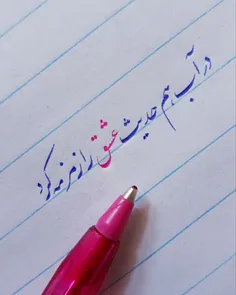 در آب هم حدیث عشق را زمزمه کرد